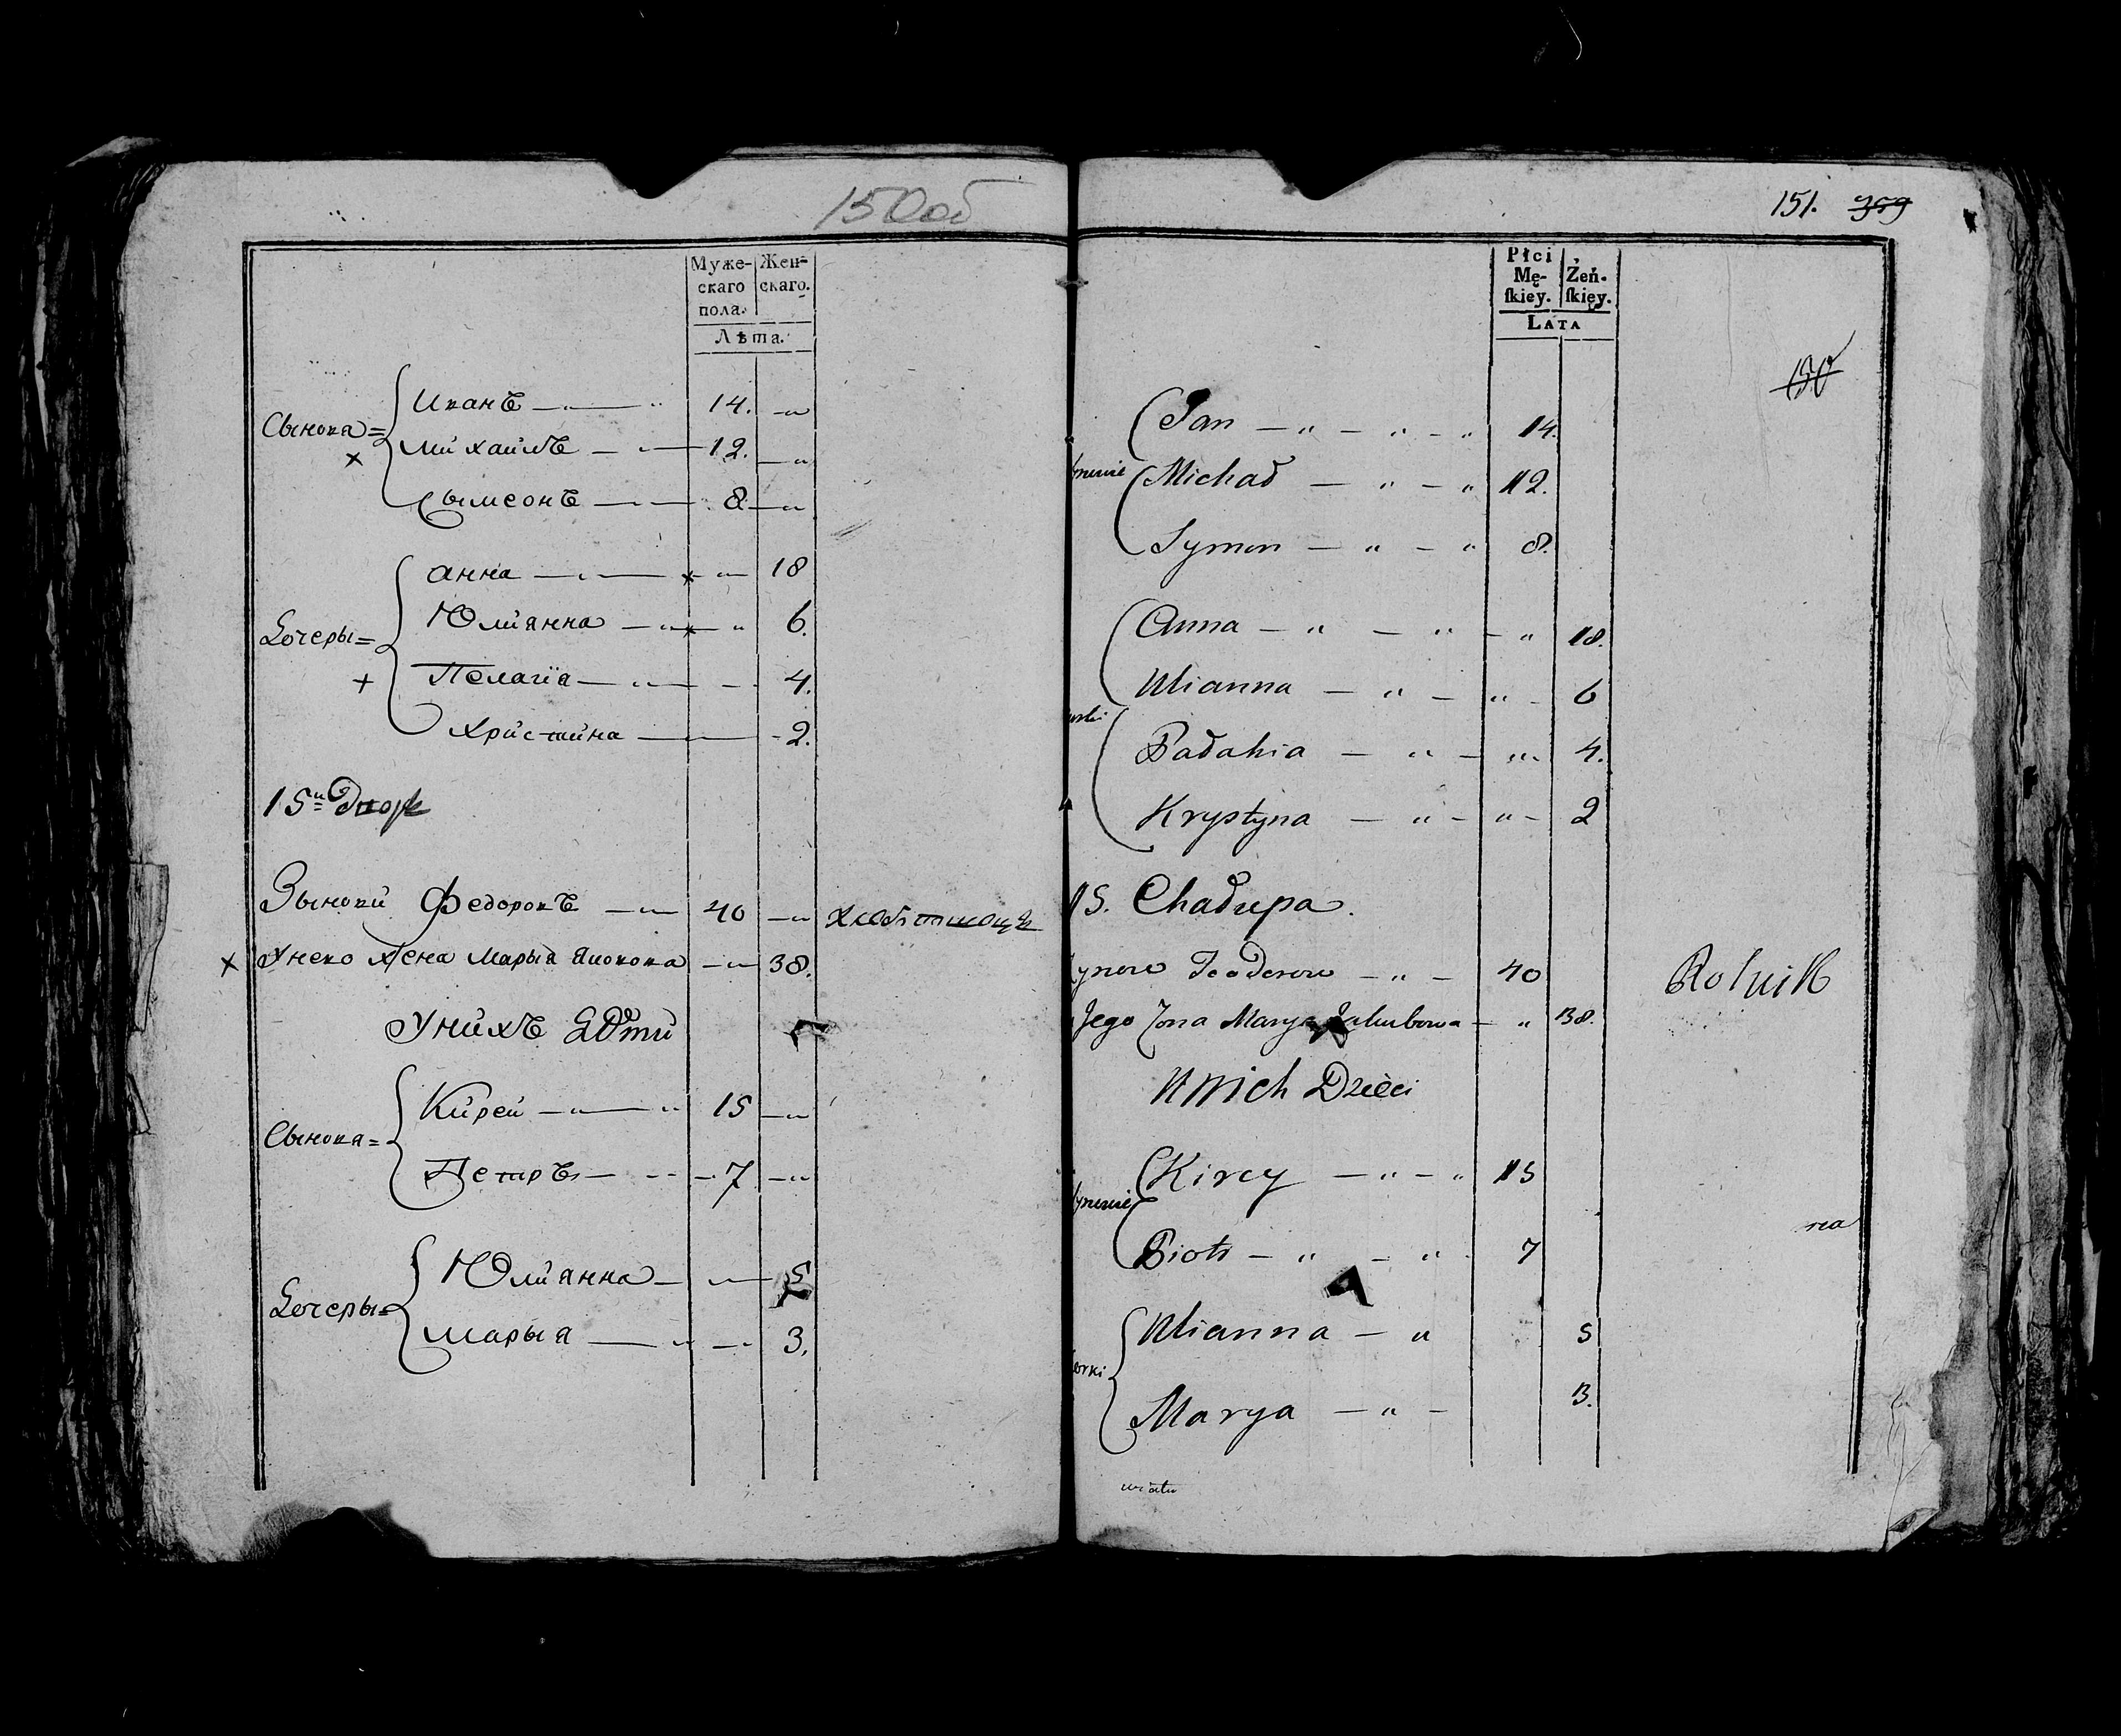 150об
Муже-
скаго
пола.
Жен-
скаго.
Лѣта.
Сынова =
Иванъ 14.
Михаилъ 12.
Сымеонъ 8
Дочеры =
анна 18
Юлианна 6.
Пелагїа 4.
Христина 2.
15й Дворъ
Зыновий Федоровъ 40
Унево жена Марыа Яковова 38.
Унихъ Дѣти
Сынова =
Кирей 15
Петръ 7
Дочеры =
Юлианна 5
Марыа 3.
151. 359
Płci
Mę-
ſkiey.
Żeń-
ſkiey.
LATA
150
Jan 14.
Michał 12.
Symon 8.
Anna 18.
Ulianna 6
Pałahia 4.
Krystyna 2
15. Chałupa.
Teodorow 40
Rolnik
Jego Zona Marya Jakubowa 38.
Unich Dzieci
Kirey 15
Piotr 7
Ulianna 5
Marya 3.